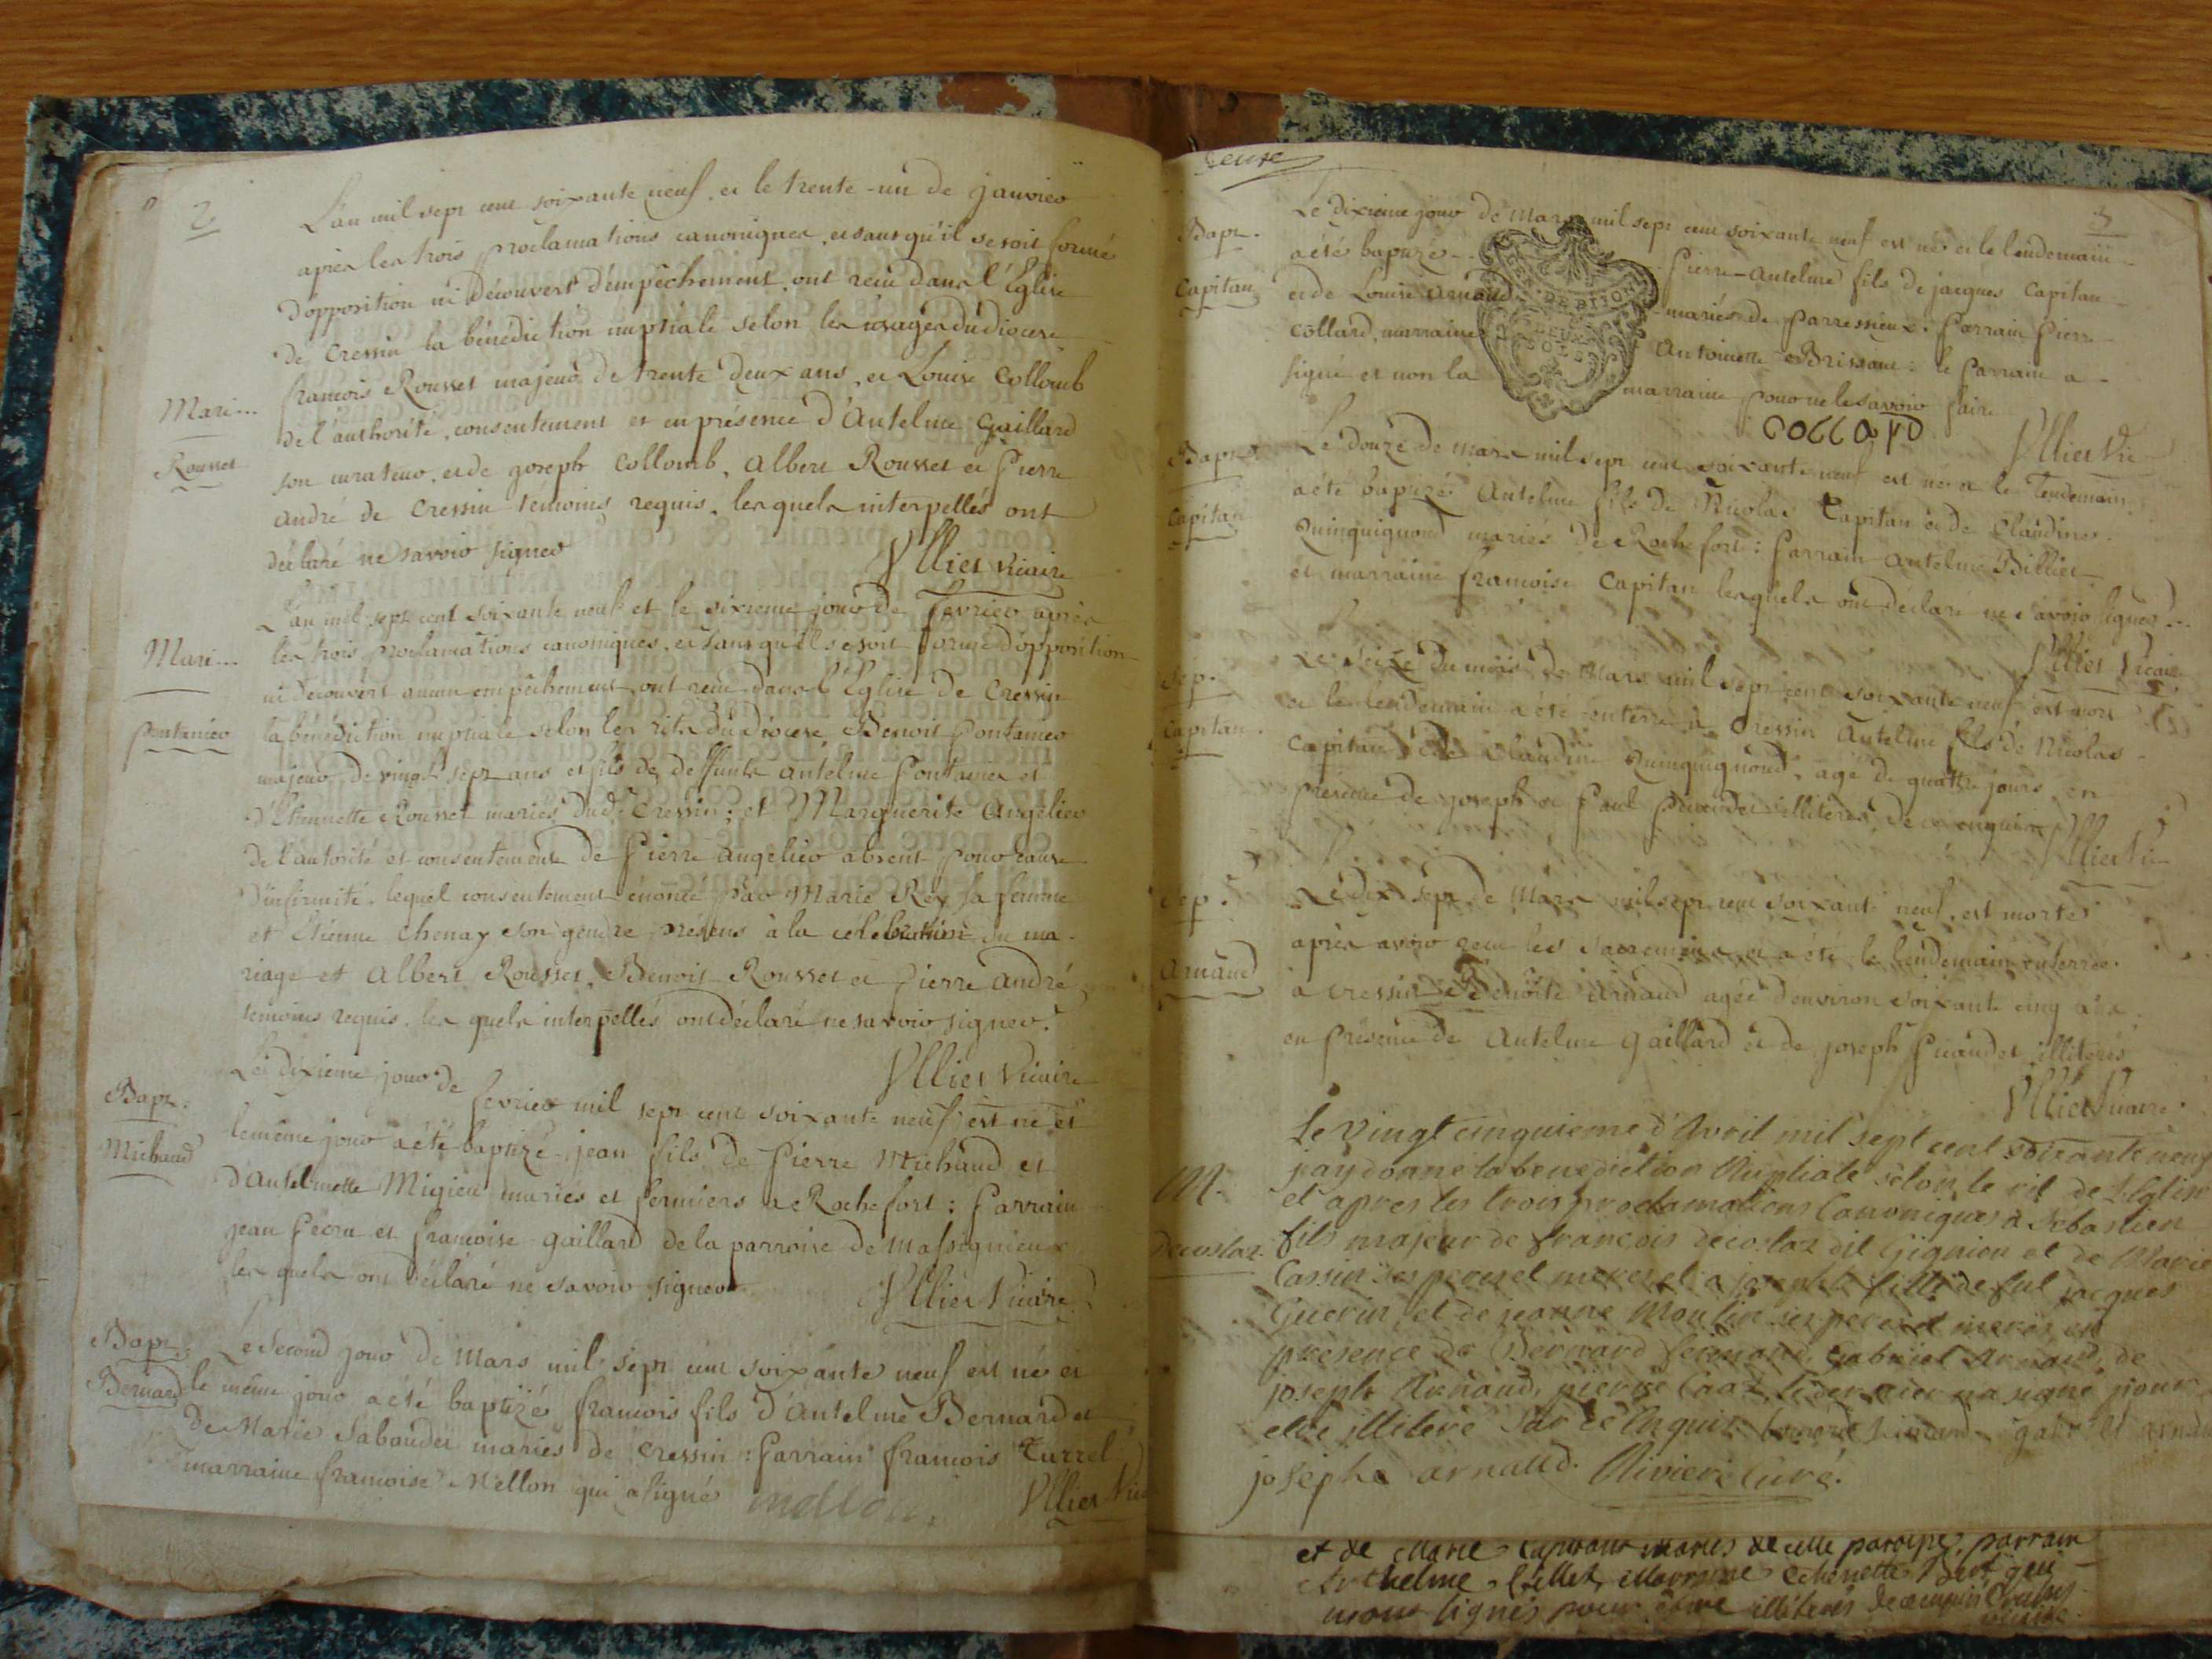 2
L'an mil sept cent soixante neuf, et le trente-un de janvier
après les trois proclamations canoniques, et sans qu'il se soit formé
d'opposition ni découvert d'empêchement, ont reçu dans l'Église
de Cressin la bénédiction nuptiale selon les usages du diocese
Mari...
Rousset
françois Rousset majeur de trente deux ans, et Louise Collomb
de l'authorité, consentement et en présence d'Antelme Gaillard
son curateur, et de joseph Collomb, Albert Rousset et Pierre
André de Cressin témoins requis, lesquels interpellés ont
déclaré ne savoir signer
Vllier Vicaire
L'an mil sept cent soixante neuf et le sixieme jour de fevrier après
Mari...
pontanier
les trois proclamations canoniques, et sans qu'il se soit formé d'opposition
ni découvert aucun empêchement, ont reçu dans l'Église de Cressin
la bénédiction nuptiale selon les rits du diocese Benoit pontanier
majeur de vingt sept ans et fils de deffunts antelme pontanier et
d'Etiennette Rousset mariés dud. Cressin; et Marguerite Angelier
de l'autorité et consentement de Pierre angelier absent pour cause
d'infirmité, lequel consentement énoncé par Marie Rey sa femme
et Etienne Chenay son gendre présens à la célébration du ma-
riage et Albert Rousset, Benoit Rousset et Pierre André
temoins requis, lesquels interpellés ont déclaré ne savoir signer.
Vllier Vicaire
Bapt.
Michaud
Le dixieme jour de fevrier mil sept cent soixante neuf est né et
le même jour a été baptizé jean fils de Pierre Michaud et
d'Antelmette Migieu mariés et fermiers a Rochefort: Parrain
jean Pecru et françoise gaillard de la parroise de massignieux
lesquels ont déclaré ne savoir signer
Vllier Vicaire
Bapt.
Bernard
Le second jour de Mars mil sept cent soixante neuf est né et
le même jour a été baptizé francois fils d'Antelme Bernard et
de Marie Sabaudet mariés de Cressin: Parrain francois Turrel
marraine francoise Mellon qui a signé mellon.
Vllier Vic
3
Bapt.
Capitan
Le dixieme jour de Mars mil sept cent soixante neuf est né et le lendemain
a été baptizé Pierre-Antelme fils de jacques Capitan
et de Louise Arnaud mariés de Parressieux: Parrain Pierre
Collard, marraine Antoinette Brissaut: le Parrain a
signé et non la marraine pour ne le savoir faire
GEN. DEUX SOLS
COLLARD
Vllier Vic
Bapt.
Capitan
Le douze de Mars mil sept cent soixante neuf est né et le lendemain
a été baptizé Antelme fils de Nicolas Capitan et de Claudine
Quinquignond mariés de Rochefort: Parrain Antelme Billiet
et marraine françoise Capitan lesquels ont déclaré ne savoir signer...
Vllier Vicaire
Sép.
Capitan
Le seize du mois de Mars mil sept cent soixante neuf est mort
et le lendemain a été enterré à Cressin Antelme fils de Nicolas
Capitan et de Claudine Quinquignond, agé de quattre jours, en
présence de joseph et Paul illiterés de ce enquis
Vllier Vic
Sép.
Arnaud
Le dix sept de Mars mil sept cent soixante neuf, est morte
après avoir reçu les sacremens et a été le lendemain enterrée
à Cressin Benoite Arnaud agée d'environ soixante cinq ans
en présence de Antelme gaillard et de joseph Picaudet illiterés
Vllier Vicaire
M.
Decostaz
Le Vingt cinquieme d'Avril mil sept cent soixante neuf
jay donné la benediction Nuptiale selon le rit de L'Eglise
et apres les trois proclamations Canoniques à Sebastien
fils majeur de francois decostaz dit Gignieu et de Marie
Cassin ses peres et meres et a fille de fut jacques
Guerin, et de jeanne Moulin ses peres et meres en
presence de Bernard gabriel Arnaud, de
joseph Arnaud, pierre le dernier na signé pour
etre illiteré sur ce Enquis. arnaud
joseph arnaud. Riviere Curé.
et de Marie mariés de cette paroisse, parrain
Anthelme Marraine qui
nont signés pour être illiterés de ce enquis